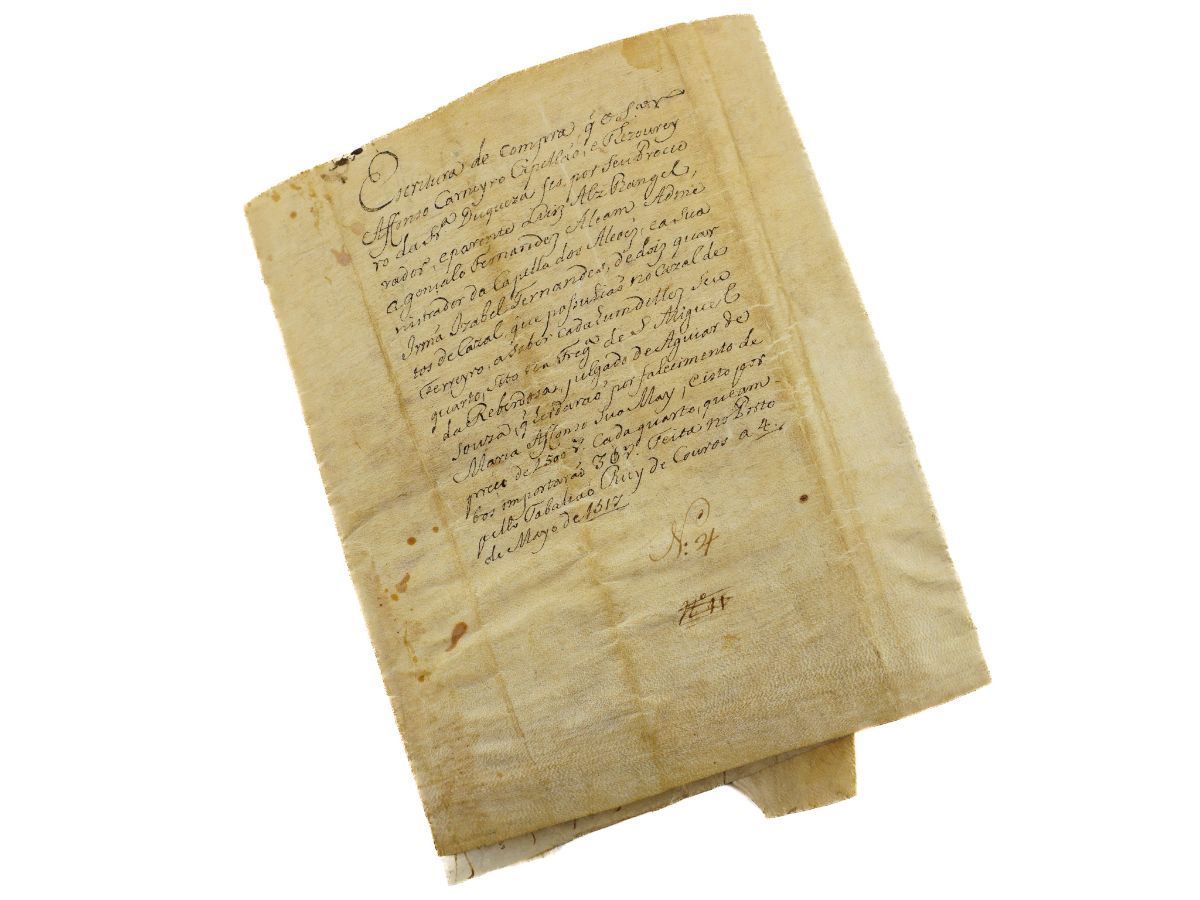 Escritura de compra, q̃ o S.ar
Affonso Carneyro Capellão, e Thezourey
ro da Sr.ª Duqueza fes, por seu Procu
rador, e parente Luiz Alz Rangel,
a Gonçalo Fernandez Aleam Adme
nistrador da Capella dos Aleẽs, e a sua
Irmã Izabel Fernandes, de dois quar
tos de Cazal, que possuião no Cazal de
Ferreyro, a saber cada hum delles seu
quarto, sito na Freg.ª de S. Miguel
da Reberdosa, julgado de Aguiar de
Souza, q̃ herdarão por falecimento de
Maria Affonso sua May, e isto por
preço de 1500 r.s cada quarto, que am-
bos importarão 3U r.s. Feita no Porto
pello Tabalião Ruy de Couros a 4
de Mayo de 1517
N.º 4
N.º 11